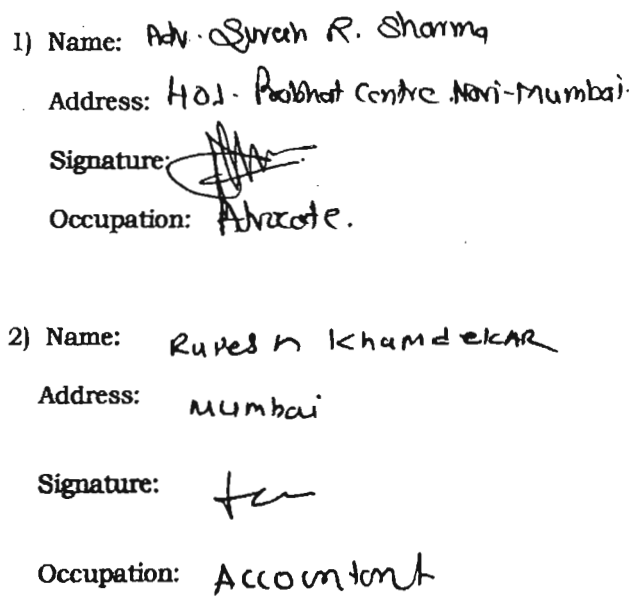 1) Name: Adv. Suresh R. Sharma
Address: 401. Prabhat Centre. Navi-Mumbai.
Signature:
Occupation: Advocate.
2) Name: Rupesh Khamdekar
Address: Mumbai
Signature:
Occupation: Accountant